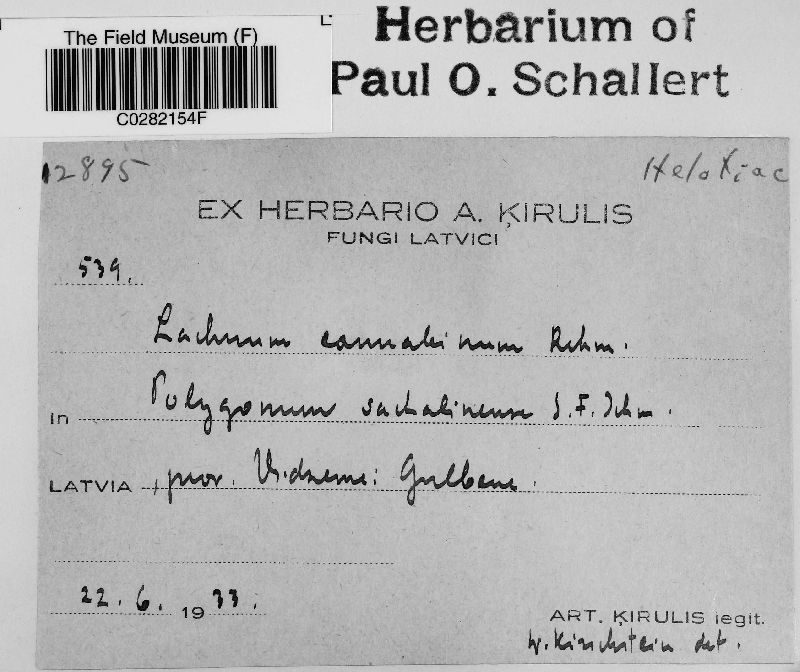 The Field Museum (F)
C0282154F
Herbarium of
Paul O. Schallert
12895
Helotiac
EX HERBARIO A. ĶIRULIS
FUNGI LATVICI
539.
Lachnum cannabinum Rehm.
in Polygonum sachalinense S. F. Schm.
LATVIA, prov. Vidzeme: Gulbene.
22. 6. 1933.
ART. ĶIRULIS legit.
W. Kirschstein det.